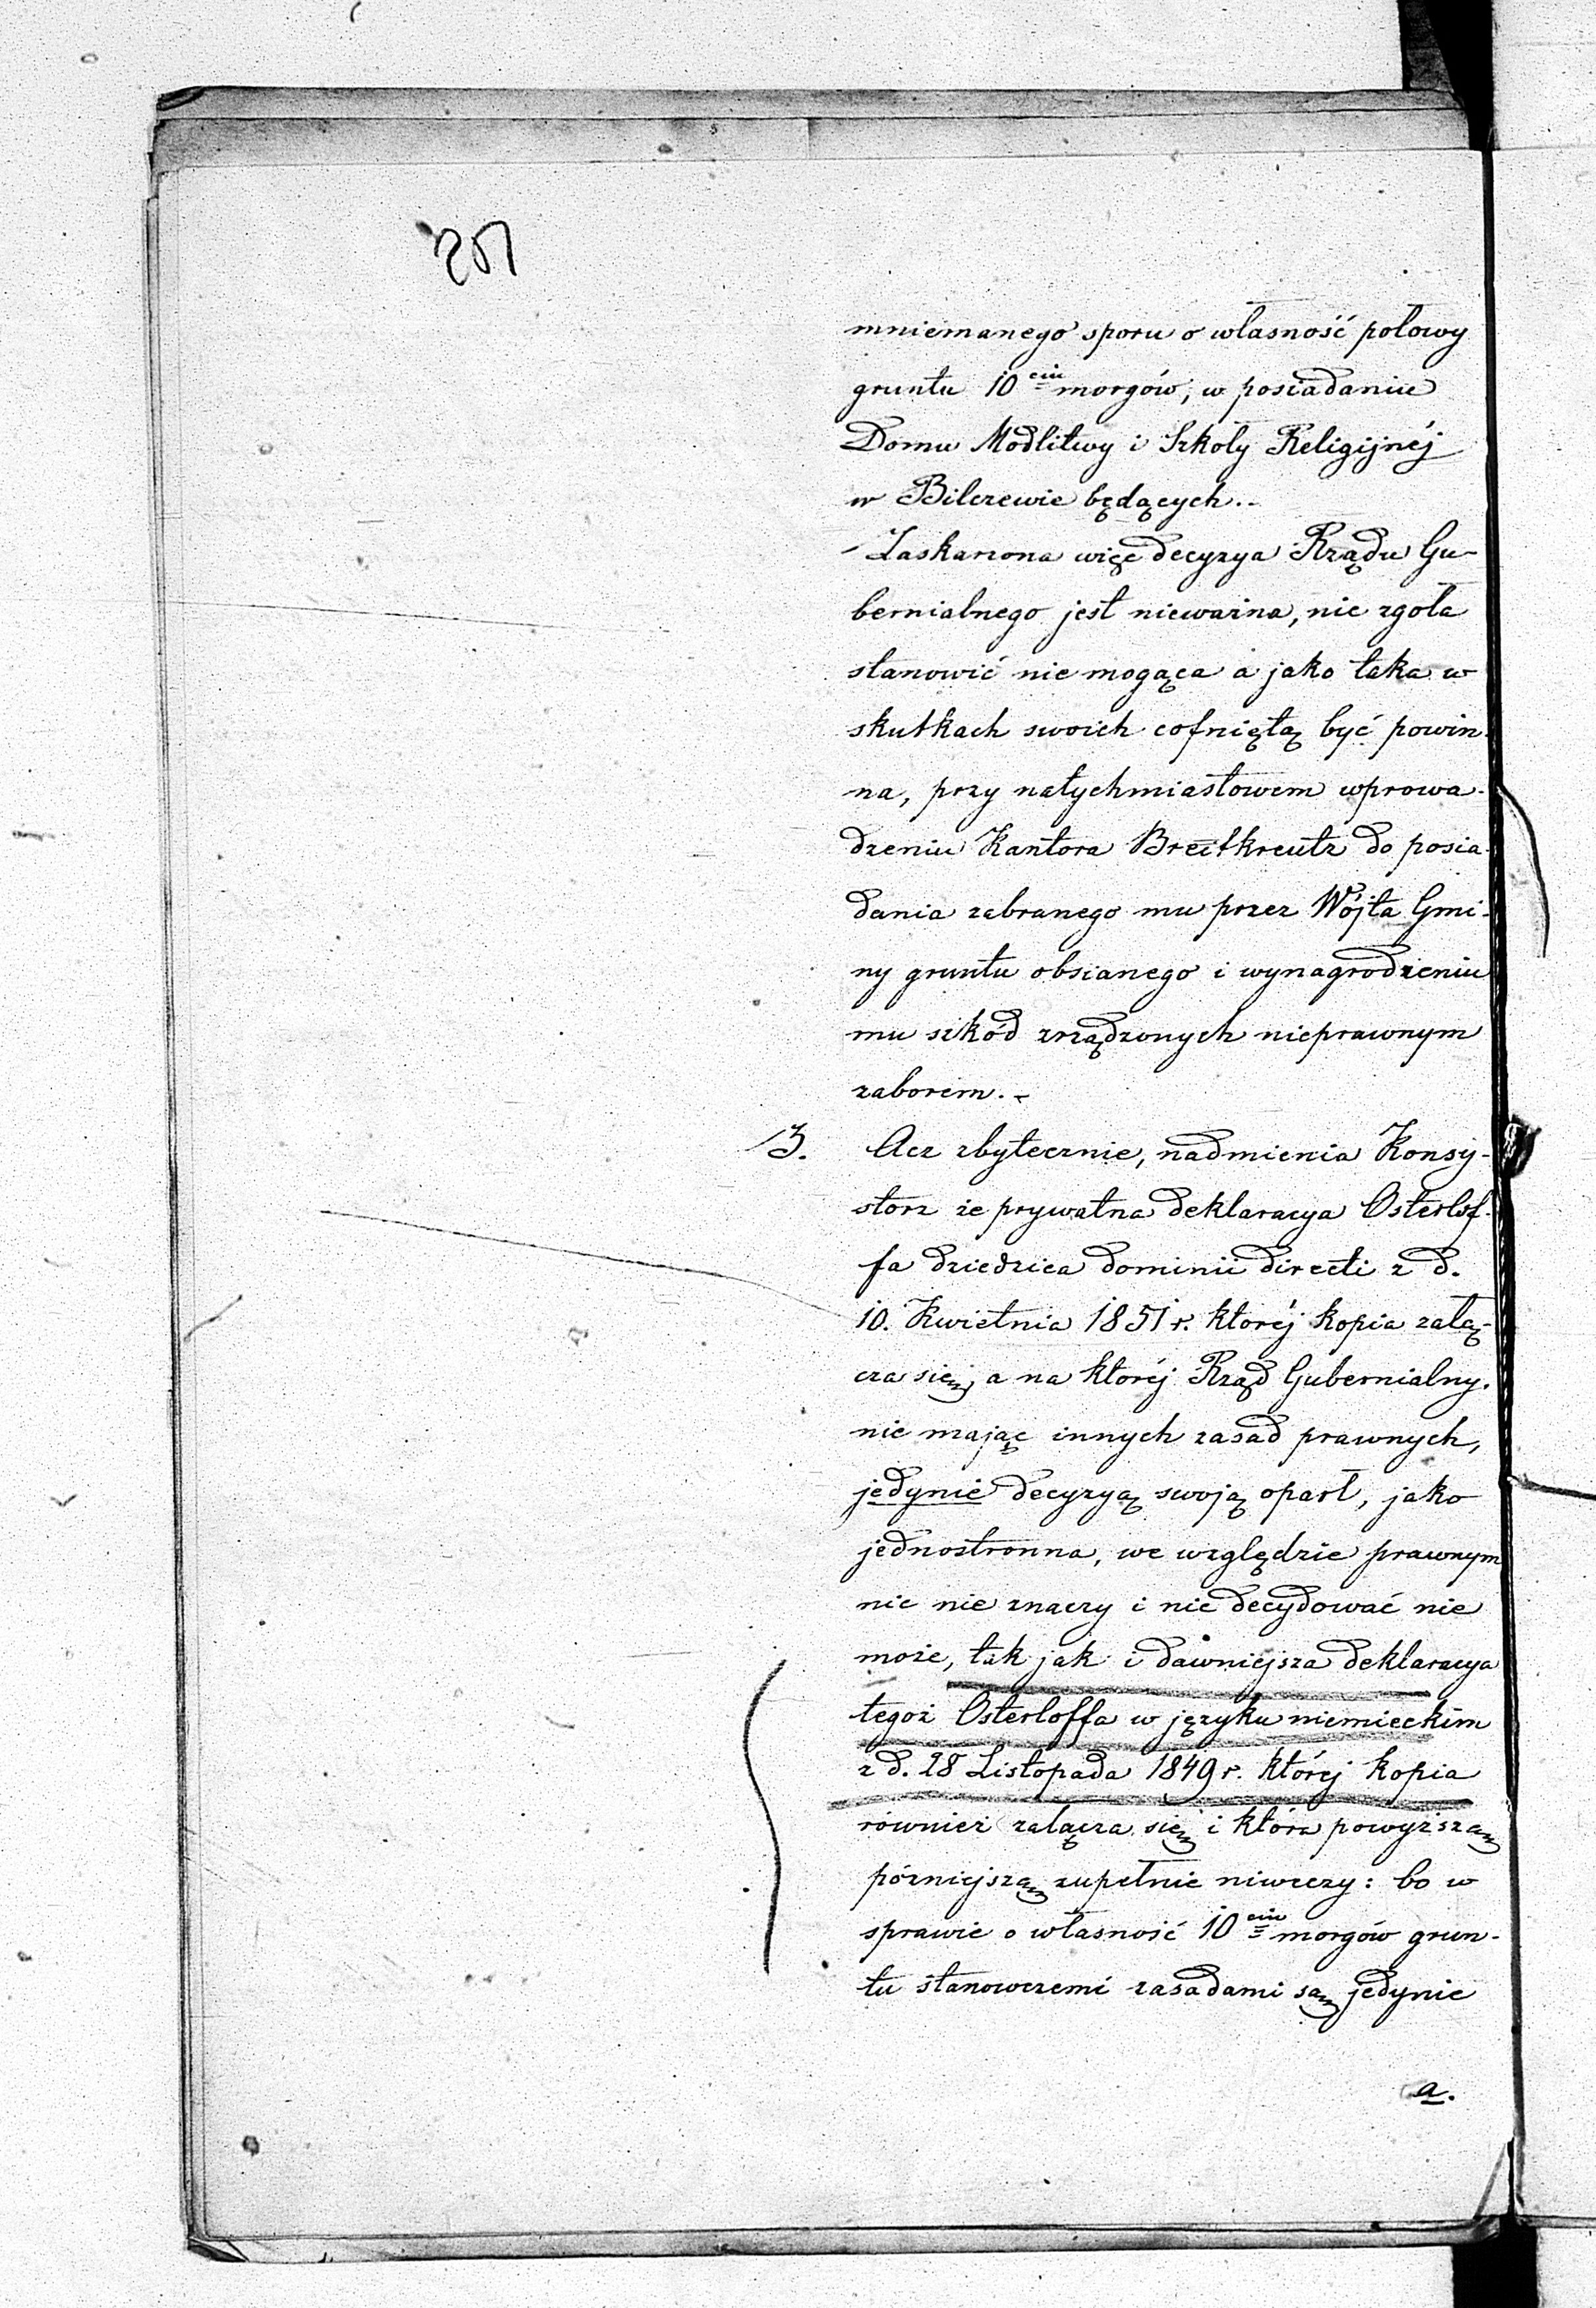 mniemanego sporu o własność połowy
gruntu 10 ciu morgów, w posiadaniu
Domu Modlitwy i Szkoły Religijnéj
w Bilczewie będących.-
Zaskarżona więc decyzya Rządu Gu-
bernialnego jest nieważna, nic zgoła
stanowić nie mogąca a jako taka w
skutkach swoich cofniętą być powin-
na, przy natychmiastowem wprowa-
dzeniu Kantora Breitkreutz do posia-
dania zabranego mu przez Wójta Gmi-
ny gruntu obsianego i wynagrodzeniu
mu szkód zrządzonych nieprawnym
zaborem.-
3. Acz zbytecznie, nadmienia Konsy-
storz że prywatna deklaracya Osterlof-
fa dziedzica dominii directi z d.
10. Kwietnia 1851 r. któréj kopia załą-
cza się, a na któréj Rząd Gubernialny.
nie mając innych zasad prawnych,
jedynie decyzyą swoją oparł, jako
jednostronna, we względzie prawnym
nic nie znaczy i nic decydować nie
może, tak jak i dawniejsza deklaracya
tegoż Osterloffa w języku niemieckim
z d. 28 Listopada 1849 r. któréj kopia
również załącza się i która powyższą
późniejszą zupełnie niweczy: bo w
sprawie o własność 10 ciu morgów grun-
tu stanowczemi zasadami są jedynie
a.